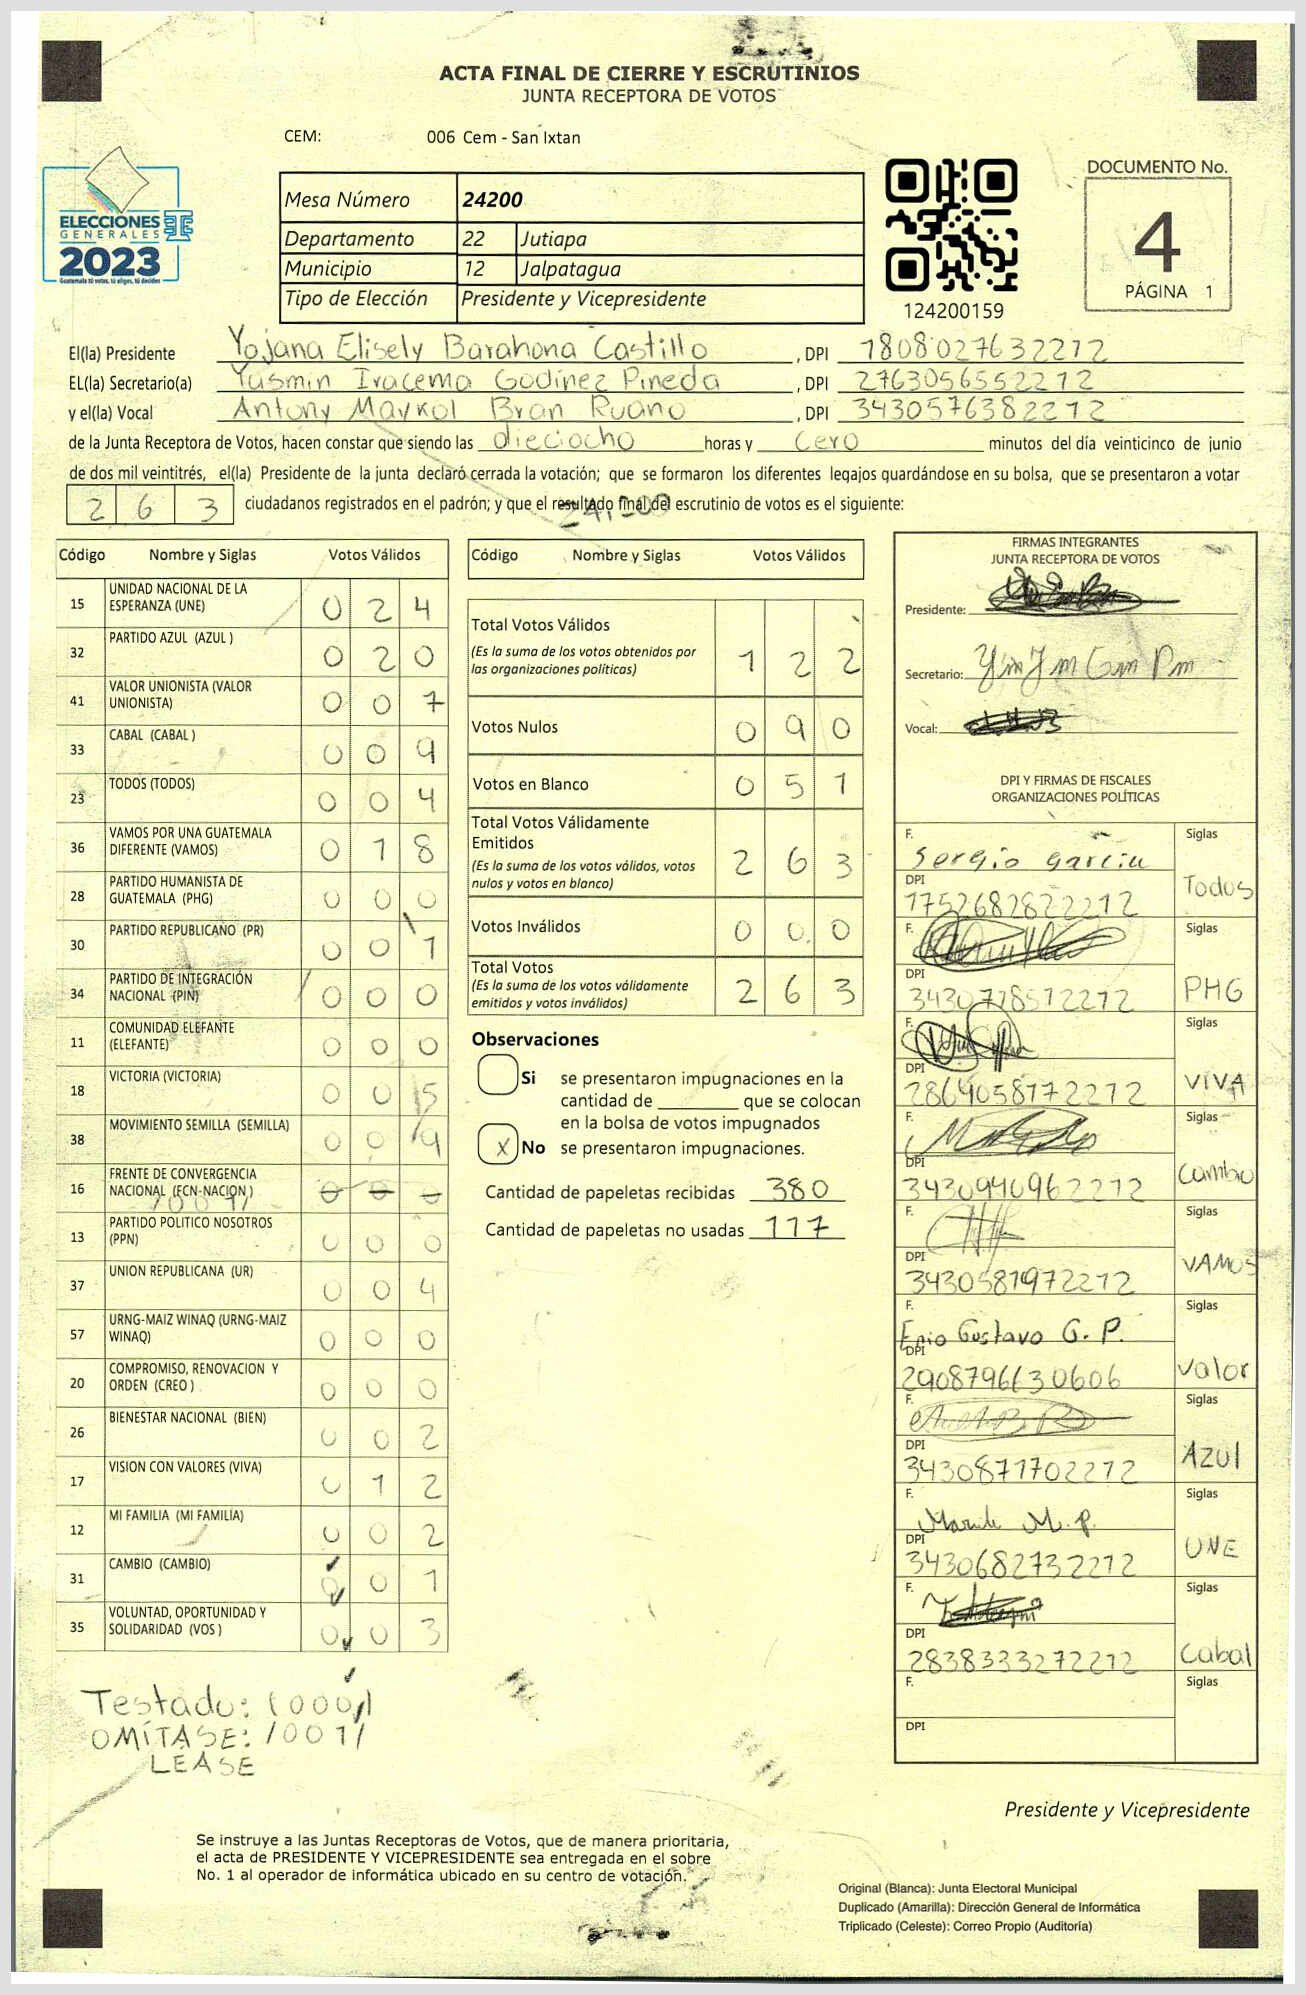 ACTA FINAL DE CIERRE Y ESCRUTINIOS
JUNTA RECEPTORA DE VOTOS
CEM: 006 Cem - San Ixtan
ELECCIONES
GENERALES
2023
Guatemala tú votas, tú eliges, tú decides
Mesa Número 24200
Departamento 22 Jutiapa
Municipio 12 Jalpatagua
Tipo de Elección Presidente y Vicepresidente
124200159
DOCUMENTO No.
4
PÁGINA 1
El(la) Presidente Yojana Elisely Barahona Castillo , DPI 1808027632212
EL(la) Secretario(a) Yusmin Iracema Godínez Pineda , DPI 2763056552212
y el(la) Vocal Antony Maykol Bran Ruano , DPI 3430576382212
de la Junta Receptora de Votos, hacen constar que siendo las dieciocho horas y cero minutos del día veinticinco de junio
de dos mil veintitrés, el(la) Presidente de la junta declaró cerrada la votación; que se formaron los diferentes legajos guardándose en su bolsa, que se presentaron a votar
2 6 3 ciudadanos registrados en el padrón; y que el resultado final del escrutinio de votos es el siguiente:
Código Nombre y Siglas Votos Válidos
15 UNIDAD NACIONAL DE LA ESPERANZA (UNE) 0 2 4
32 PARTIDO AZUL (AZUL ) 0 2 0
41 VALOR UNIONISTA (VALOR UNIONISTA) 0 0 7
33 CABAL (CABAL ) 0 0 9
23 TODOS (TODOS) 0 0 4
36 VAMOS POR UNA GUATEMALA DIFERENTE (VAMOS) 0 1 8
28 PARTIDO HUMANISTA DE GUATEMALA (PHG) 0 0 0
30 PARTIDO REPUBLICANO (PR) 0 0 1
34 PARTIDO DE INTEGRACIÓN NACIONAL (PIN) 0 0 0
11 COMUNIDAD ELEFANTE (ELEFANTE) 0 0 0
18 VICTORIA (VICTORIA) 0 0 5
38 MOVIMIENTO SEMILLA (SEMILLA) 0 0 9
16 FRENTE DE CONVERGENCIA NACIONAL (FCN-NACION ) 0 0 0
/001/
13 PARTIDO POLITICO NOSOTROS (PPN) 0 0 0
37 UNION REPUBLICANA (UR) 0 0 4
57 URNG-MAIZ WINAQ (URNG-MAIZ WINAQ) 0 0 0
20 COMPROMISO, RENOVACION Y ORDEN (CREO ) 0 0 0
26 BIENESTAR NACIONAL (BIEN) 0 0 2
17 VISION CON VALORES (VIVA) 0 1 2
12 MI FAMILIA (MI FAMILIA) 0 0 2
31 CAMBIO (CAMBIO) 0 0 1
35 VOLUNTAD, OPORTUNIDAD Y SOLIDARIDAD (VOS ) 0 0 3
Testado: (000)
OMÍTASE: /001/
LEASE
Código Nombre y Siglas Votos Válidos
Total Votos Válidos 1 2 2
(Es la suma de los votos obtenidos por
las organizaciones políticas)
Votos Nulos 0 9 0
Votos en Blanco 0 5 1
Total Votos Válidamente
Emitidos 2 6 3
(Es la suma de los votos válidos, votos
nulos y votos en blanco)
Votos Inválidos 0 0 0
Total Votos 2 6 3
(Es la suma de los votos válidamente
emitidos y votos inválidos)
Observaciones
Si se presentaron impugnaciones en la
cantidad de ________ que se colocan
en la bolsa de votos impugnados
x No se presentaron impugnaciones.
Cantidad de papeletas recibidas 380
Cantidad de papeletas no usadas 117
FIRMAS INTEGRANTES
JUNTA RECEPTORA DE VOTOS
Presidente:
Secretario:
Vocal:
DPI Y FIRMAS DE FISCALES
ORGANIZACIONES POLÍTICAS
F. Sergio García Siglas
DPI 1752682822212 Todos
F. Siglas
DPI 3430778512212 PHG
F. Siglas
DPI 2864058172212 VIVA
F. Siglas
DPI 3430940962212 Cambio
F. Siglas
DPI 3430581972212 VAMOS
F. Enio Gustavo G. P. Siglas
DPI 2908796630606 Valor
F. Siglas
DPI 3430871702212 AZUl
F. M. P. Siglas
DPI 3430682732212 UNE
F. Siglas
DPI 2838333272212 Cabal
F. Siglas
DPI
Presidente y Vicepresidente
Se instruye a las Juntas Receptoras de Votos, que de manera prioritaria,
el acta de PRESIDENTE Y VICEPRESIDENTE sea entregada en el sobre
No. 1 al operador de informática ubicado en su centro de votación.
Original (Blanca): Junta Electoral Municipal
Duplicado (Amarilla): Dirección General de Informática
Triplicado (Celeste): Correo Propio (Auditoría)